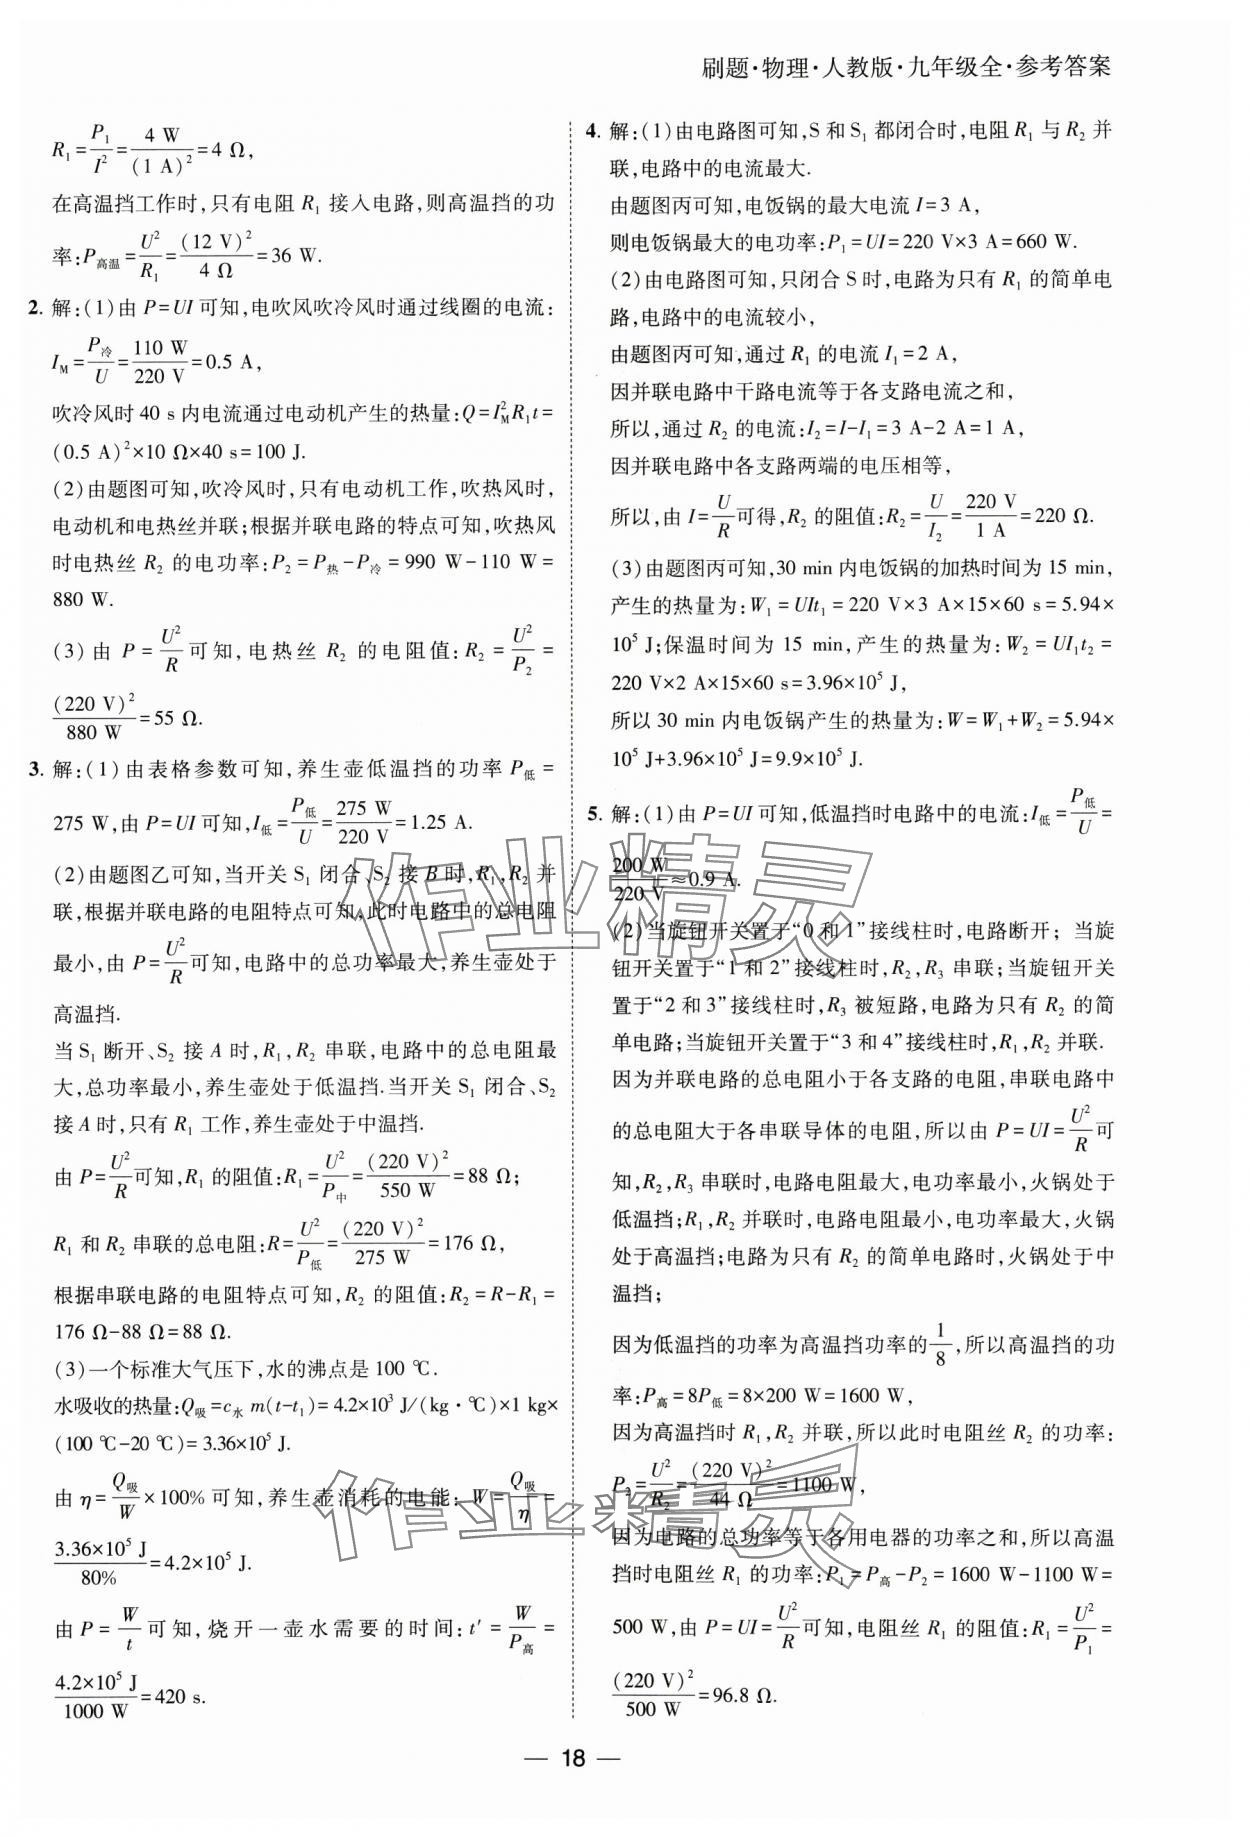 刷题·物理·人教版·九年级全·参考答案
R₁=P₁/I²=4 W/(1 A)²=4 Ω,
在高温挡工作时,只有电阻 R₁ 接入电路,则高温挡的功
率:P高温=U²/R₁=(12 V)²/4 Ω=36 W.
2. 解:(1)由 P=UI 可知,电吹风吹冷风时通过线圈的电流:
I_M=P冷/U=110 W/220 V=0.5 A,
吹冷风时 40 s 内电流通过电动机产生的热量:Q=I_M²R₁t=
(0.5 A)²×10 Ω×40 s=100 J.
(2)由题图可知,吹冷风时,只有电动机工作,吹热风时,
电动机和电热丝并联;根据并联电路的特点可知,吹热风
时电热丝 R₂ 的电功率:P₂=P热-P冷=990 W-110 W=
880 W.
(3)由 P=U²/R可知,电热丝 R₂ 的电阻值:R₂=U²/P₂=
(220 V)²/880 W=55 Ω.
3. 解:(1)由表格参数可知,养生壶低温挡的功率 P低=
275 W,由 P=UI 可知,I低=P低/U=275 W/220 V=1.25 A.
(2)由题图乙可知,当开关 S₁ 闭合、S₂ 接 B 时,R₁,R₂ 并
联,根据并联电路的电阻特点可知,此时电路中的总电阻
最小,由 P=U²/R可知,电路中的总功率最大,养生壶处于
高温挡.
当 S₁ 断开、S₂ 接 A 时,R₁,R₂ 串联,电路中的总电阻最
大,总功率最小,养生壶处于低温挡.当开关 S₁ 闭合、S₂
接 A 时,只有 R₁ 工作,养生壶处于中温挡.
由 P=U²/R可知,R₁ 的阻值:R₁=U²/P中=(220 V)²/550 W=88 Ω;
R₁ 和 R₂ 串联的总电阻:R=U²/P低=(220 V)²/275 W=176 Ω,
根据串联电路的电阻特点可知,R₂ 的阻值:R₂=R-R₁=
176 Ω-88 Ω=88 Ω.
(3)一个标准大气压下,水的沸点是 100 ℃.
水吸收的热量:Q吸=c水 m(t-t₁)=4.2×10³ J/(kg·℃)×1 kg×
(100 ℃-20 ℃)=3.36×10⁵ J.
由 η=Q吸/W×100%可知,养生壶消耗的电能:W=Q吸/η=
3.36×10⁵ J/80%=4.2×10⁵ J.
由 P=W/t可知,烧开一壶水需要的时间:t′=W/P高=
4.2×10⁵ J/1000 W=420 s.
4. 解:(1)由电路图可知,S 和 S₁ 都闭合时,电阻 R₁ 与 R₂ 并
联,电路中的电流最大.
由题图丙可知,电饭锅的最大电流 I=3 A,
则电饭锅最大的电功率:P₁=UI=220 V×3 A=660 W.
(2)由电路图可知,只闭合 S 时,电路为只有 R₁ 的简单电
路,电路中的电流较小,
由题图丙可知,通过 R₁ 的电流 I₁=2 A,
因并联电路中干路电流等于各支路电流之和,
所以,通过 R₂ 的电流:I₂=I-I₁=3 A-2 A=1 A,
因并联电路中各支路两端的电压相等,
所以,由 I=U/R可得,R₂ 的阻值:R₂=U/I₂=220 V/1 A=220 Ω.
(3)由题图丙可知,30 min 内电饭锅的加热时间为 15 min,
产生的热量为:W₁=UIt₁=220 V×3 A×15×60 s=5.94×
10⁵ J;保温时间为 15 min,产生的热量为:W₂=UI₁t₂=
220 V×2 A×15×60 s=3.96×10⁵ J,
所以 30 min 内电饭锅产生的热量为:W=W₁+W₂=5.94×
10⁵ J+3.96×10⁵ J=9.9×10⁵ J.
5. 解:(1)由 P=UI 可知,低温挡时电路中的电流:I低=P低/U=
200 W/220 V≈0.9 A.
(2)当旋钮开关置于“0 和 1”接线柱时,电路断开;当旋
钮开关置于“1 和 2”接线柱时,R₂,R₃ 串联;当旋钮开关
置于“2 和 3”接线柱时,R₃ 被短路,电路为只有 R₂ 的简
单电路;当旋钮开关置于“3 和 4”接线柱时,R₁,R₂ 并联.
因为并联电路的总电阻小于各支路的电阻,串联电路中
的总电阻大于各串联导体的电阻,所以由 P=UI=U²/R可
知,R₂,R₃ 串联时,电路电阻最大,电功率最小,火锅处于
低温挡;R₁,R₂ 并联时,电路电阻最小,电功率最大,火锅
处于高温挡;电路为只有 R₂ 的简单电路时,火锅处于中
温挡;
因为低温挡的功率为高温挡功率的1/8,所以高温挡的功
率:P高=8P低=8×200 W=1600 W,
因为高温挡时 R₁,R₂ 并联,所以此时电阻丝 R₂ 的功率:
P₂=U²/R₂=(220 V)²/44 Ω=1100 W,
因为电路的总功率等于各用电器的功率之和,所以高温
挡时电阻丝 R₁ 的功率:P₁=P高-P₂=1600 W-1100 W=
500 W,由 P=UI=U²/R可知,电阻丝 R₁ 的阻值:R₁=U²/P₁=
(220 V)²/500 W=96.8 Ω.
作业精灵
作业精灵
— 18 —